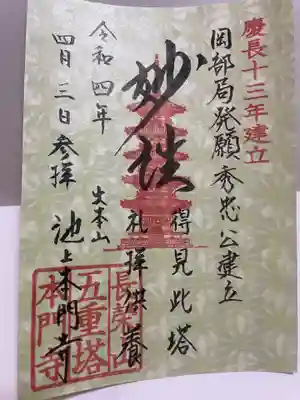 慶長十三年建立
岡部局発願秀忠公建立
得見此塔
礼拝供養
妙法
令和四年
四月三日参拝
大本山
池上本門寺
長榮山
五重塔
本門寺